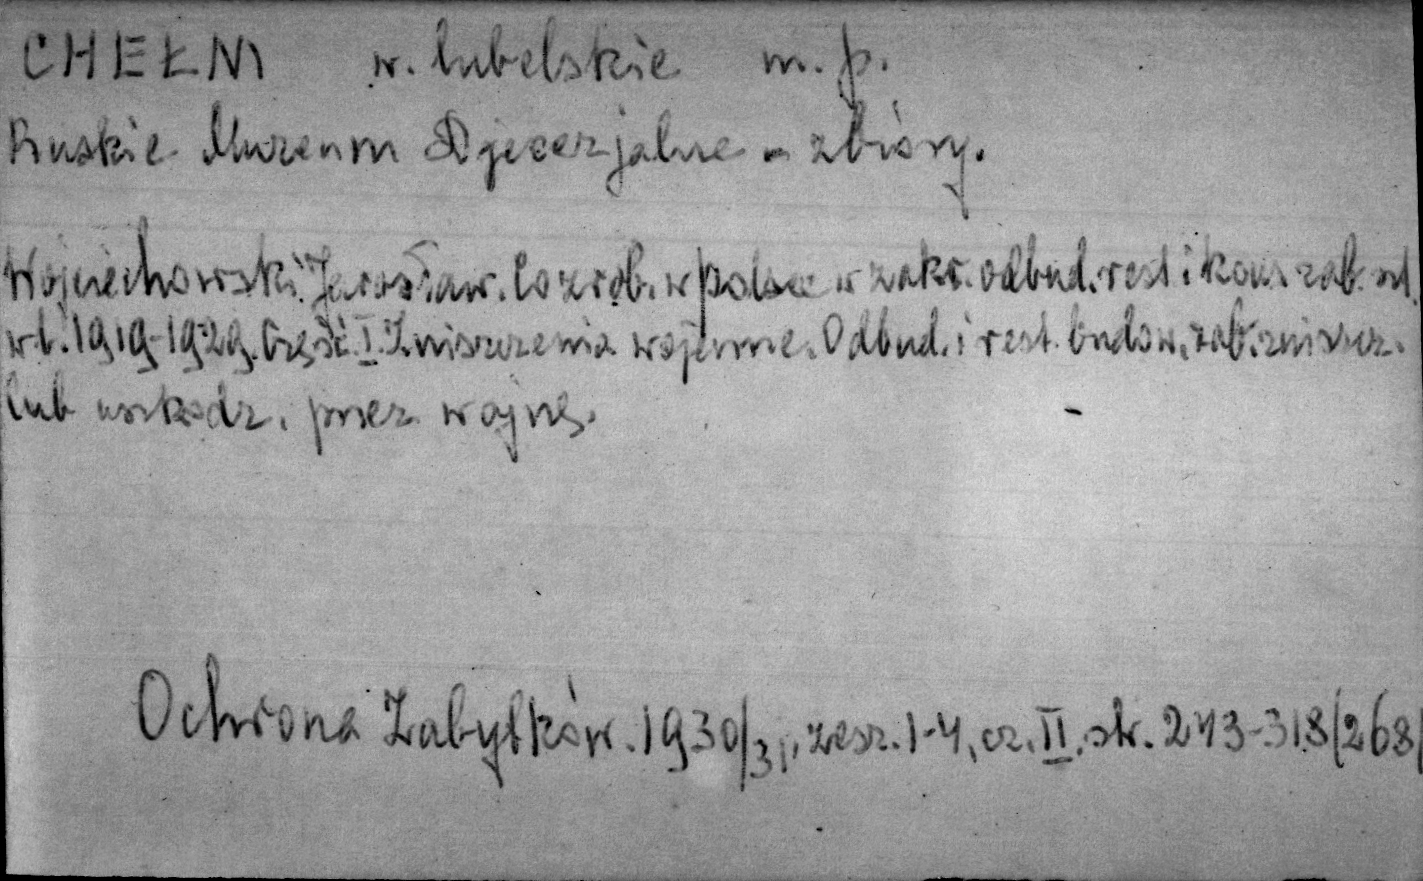 CHEŁM w. lubelskie m. p.
Ruskie Muzeum Djecezjalne - zbiory.
Wojciechowski Jarosław. Co zrob. w Polsce w zakr. odbud. rest i kons. zab. szt.
w l. 1919-1929. Część I. Zniszczenia wojenne. Odbud. i rest. budow. zab. zniszcz.
lub uszkodz. przez wojnę.
Ochrona Zabytków. 1930/31, zesz. 1-4, cz. II. str. 243-318 (268)